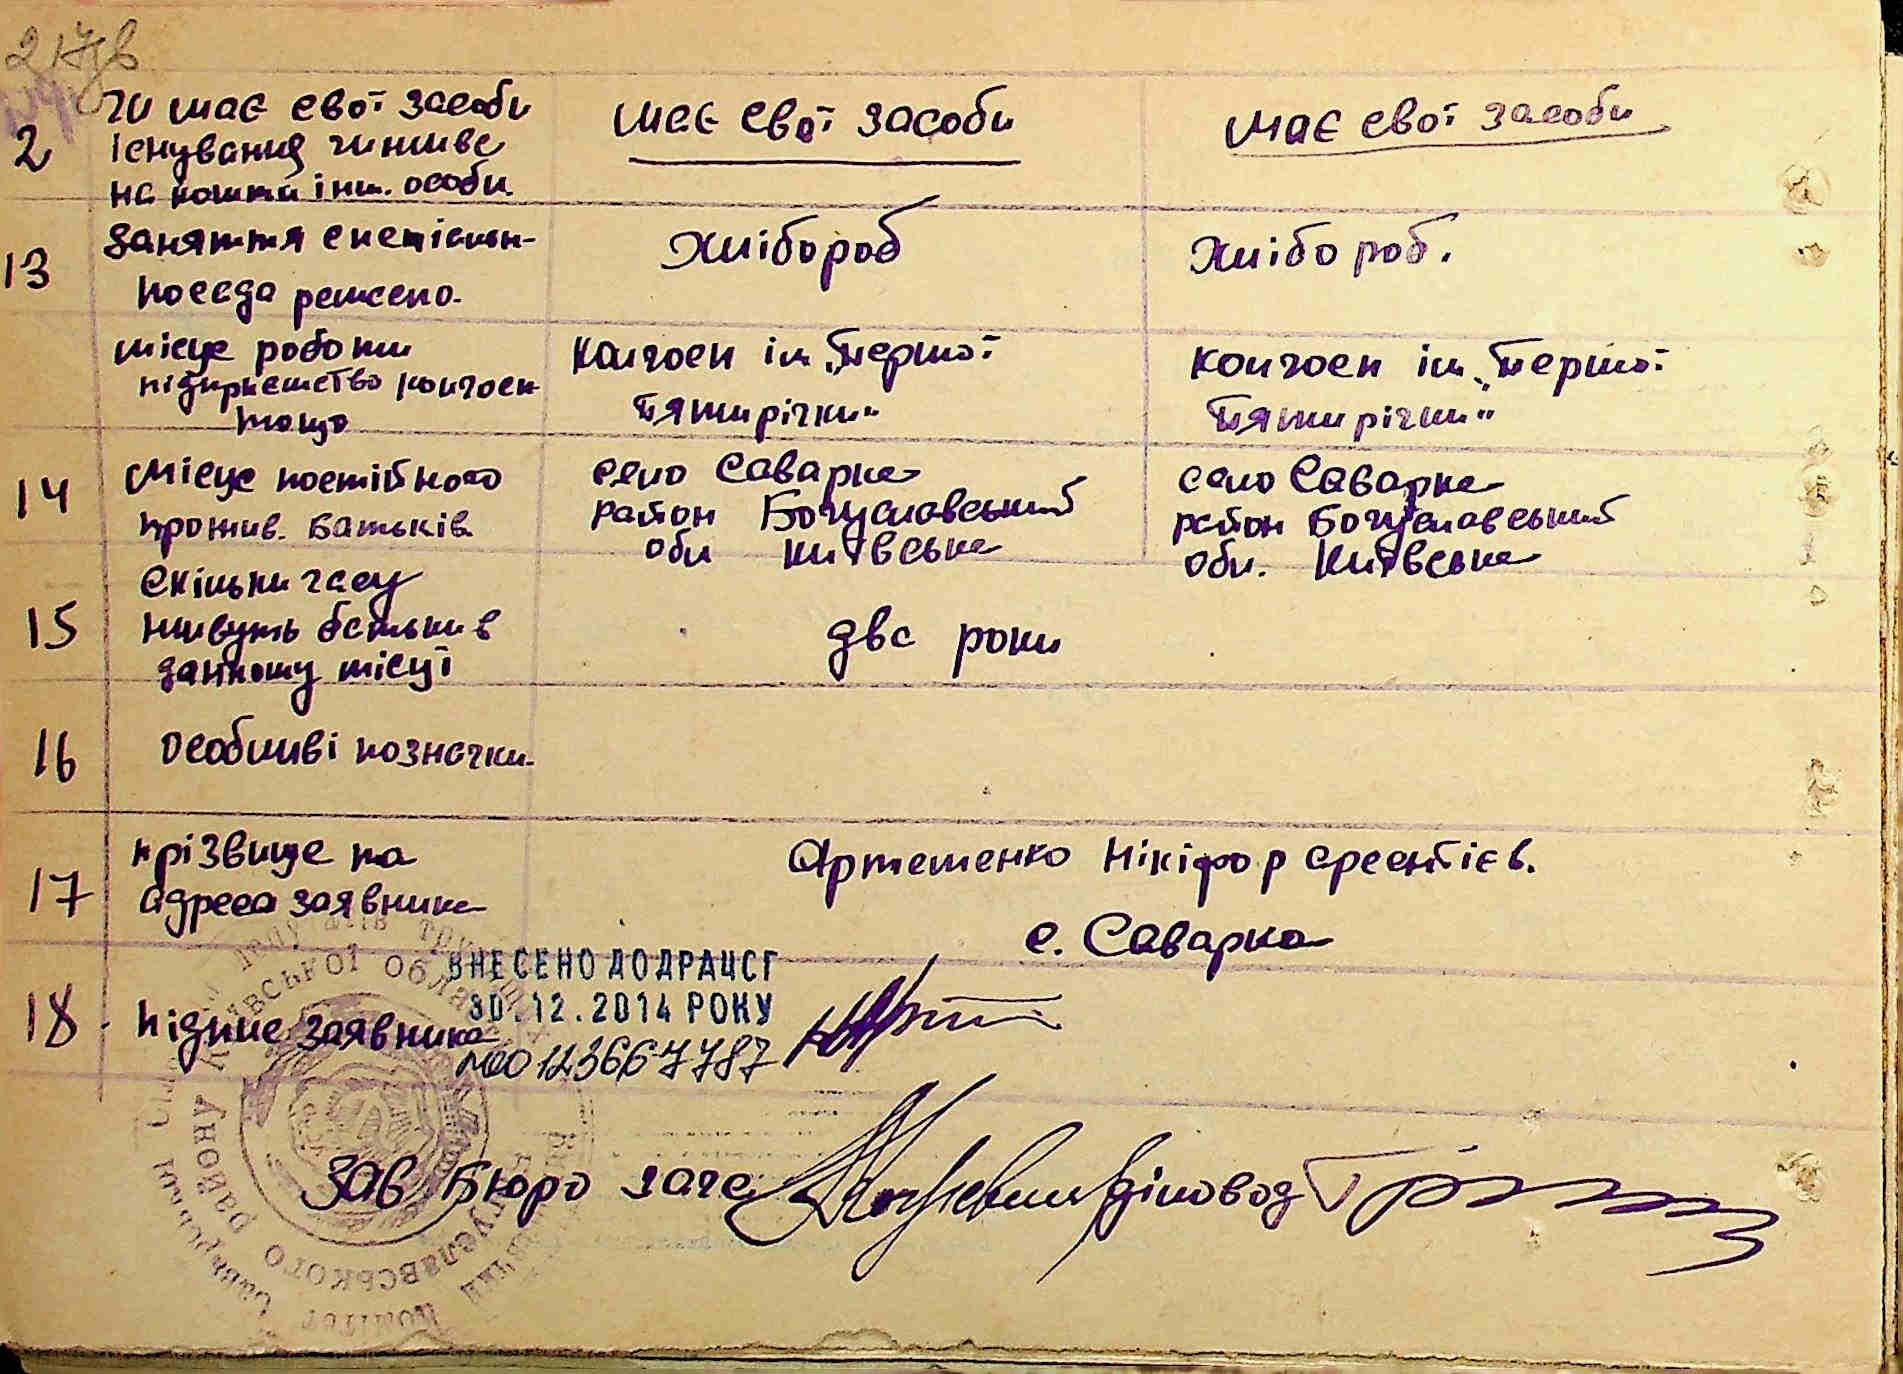 чи має свої засоби
2 існування чи живе має свої засоби має свої засоби
на кошти інш. особи.
13 Заняття спеціальн- Хлібороб Хлібороб.
посада ремесло.
місце роботи колгосп ім. „Першої колгосп ім. „Першої
підприємство колгосп пятирічки" пятирічки"
тощо
14 Місце постійного село Саварка село Саварка
прожив. батьків район Богуславський район Богуславський
обл Київська обл. Київська
Скільки часу
15 живуть батьки в два роки
данному місці
16 Особливі позначки.
17 прізвище та Артеменко Нікіфор Арсентієв.
адреса заявника с. Саварка
ВНЕСЕНО ДО ДРАЦСГ
30.12.2014 РОКУ
18 Підпис заявника
№00123667787
Зав Бюро загс діловод
Київської області
Богуславського району
комітет